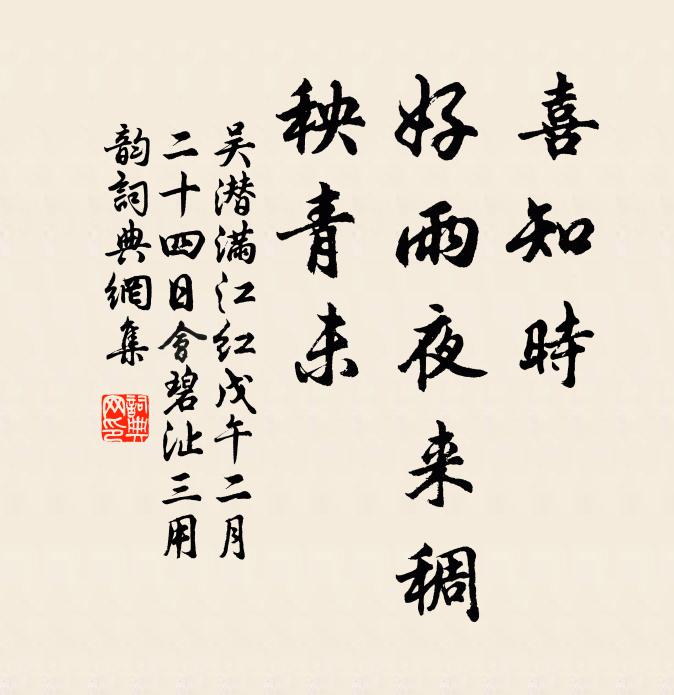 喜知時
好雨夜来稠
秧青未
吴潜满江红戊午二月
二十四日會碧沚三用
韵詞典網集
詞典
网印